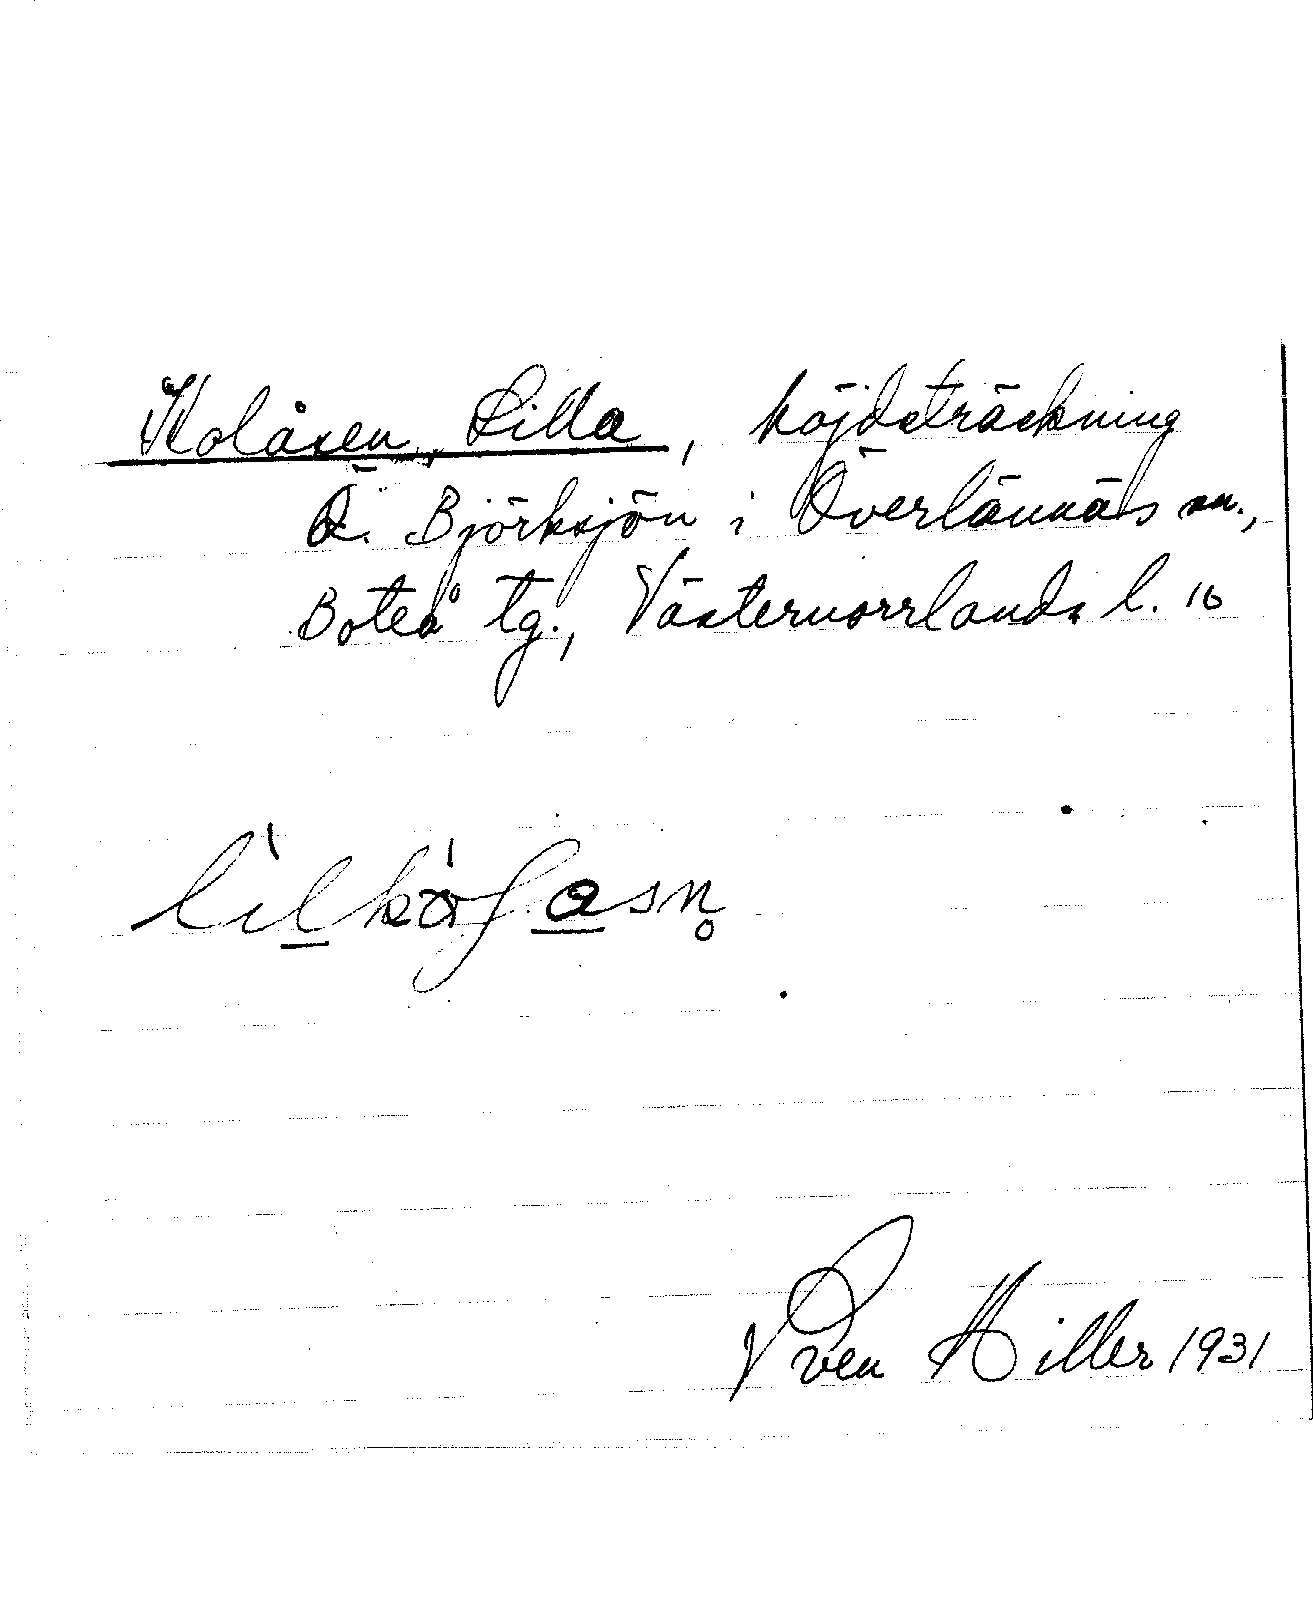 Kolåsen, Lilla, höjdsträckning
Ö. Björksjön i Överlännäs sn.,
Boteå tg., Västernorrlands l. 16
Sven Hiller 1931